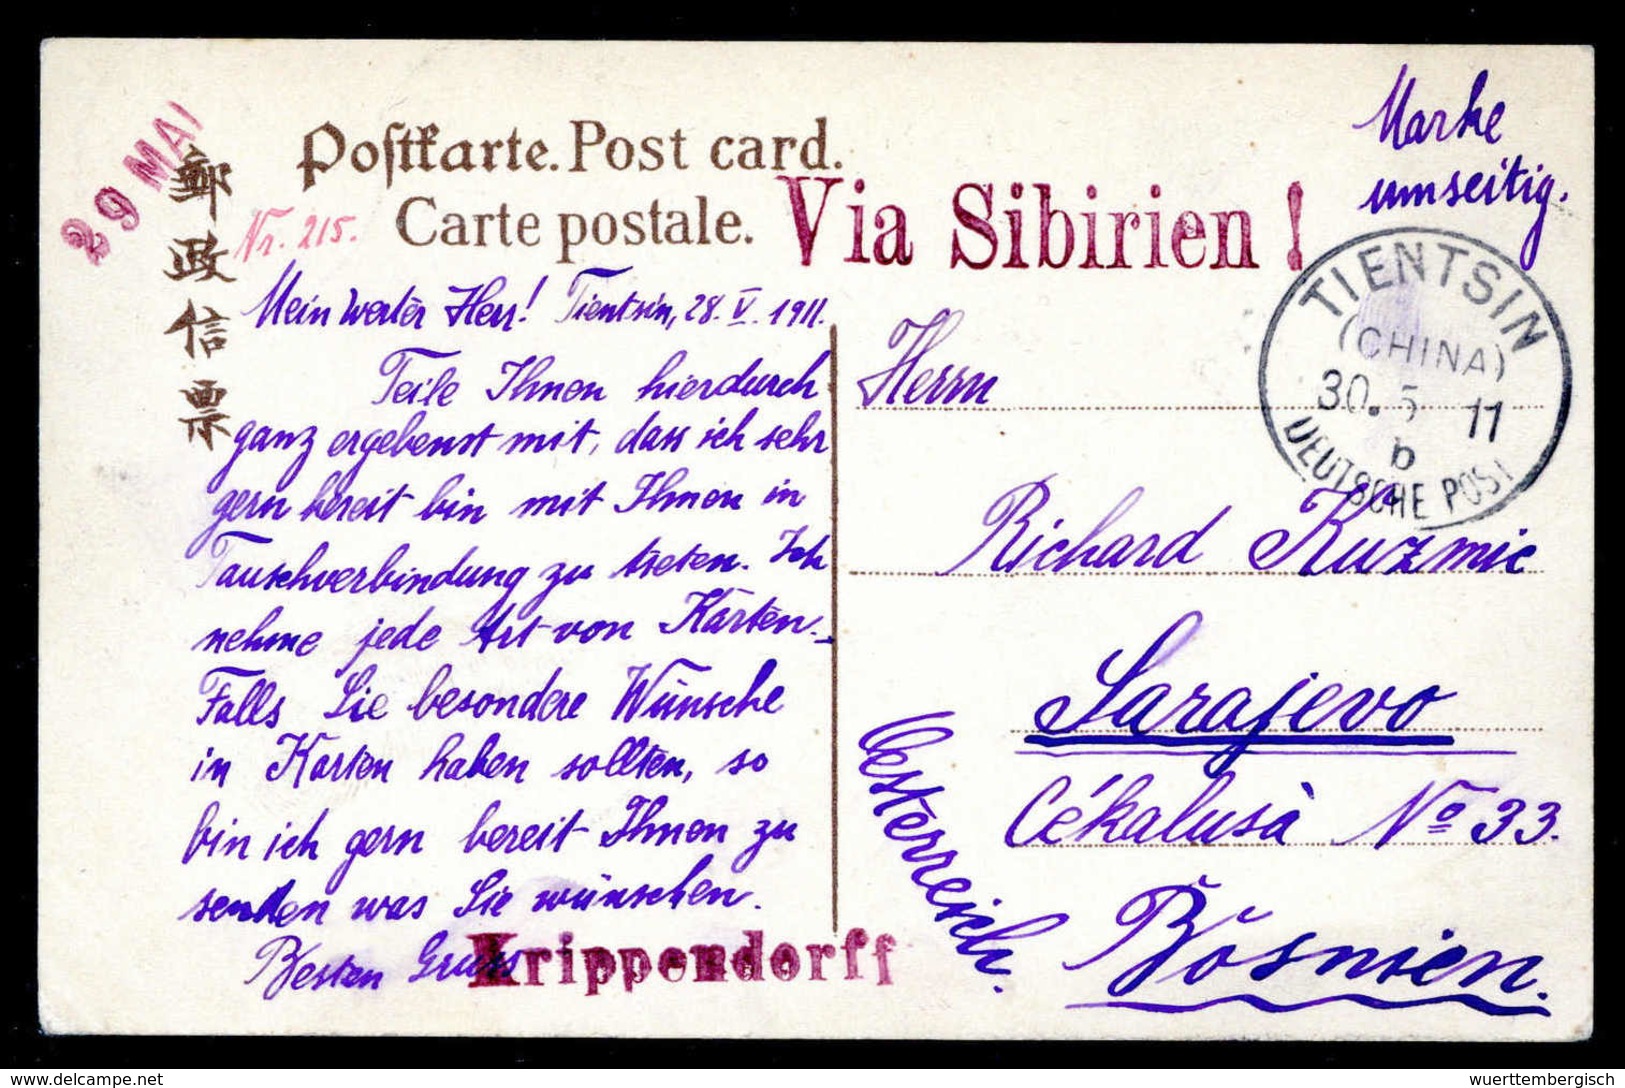 29 MAI
郵政信票
Postkarte. Post card.
Carte postale.
Nr. 215.
Via Sibirien!
Marke
umseitig.
TIENTSIN
(CHINA)
30. 5 11
b
DEUTSCHE POST
Mein werter Herr! Tientsin, 28. V. 1911.
Teile Ihnen hierdurch
ganz ergebenst mit, dass ich sehr
gern bereit bin mit Ihnen in
Tauschverbindung zu treten. Ich
nehme jede Art von Karten.
Falls Sie besondere Wünsche
in Karten haben sollten, so
bin ich gern bereit Ihnen zu
senden was Sie wünschen.
Besten Gruss
Krippendorff
Herrn
Richard Kuzmic
Sarajevo
Cékalusà No 33.
Oesterreich.
Bosnien.
delcampe.net
wuerttembergisch